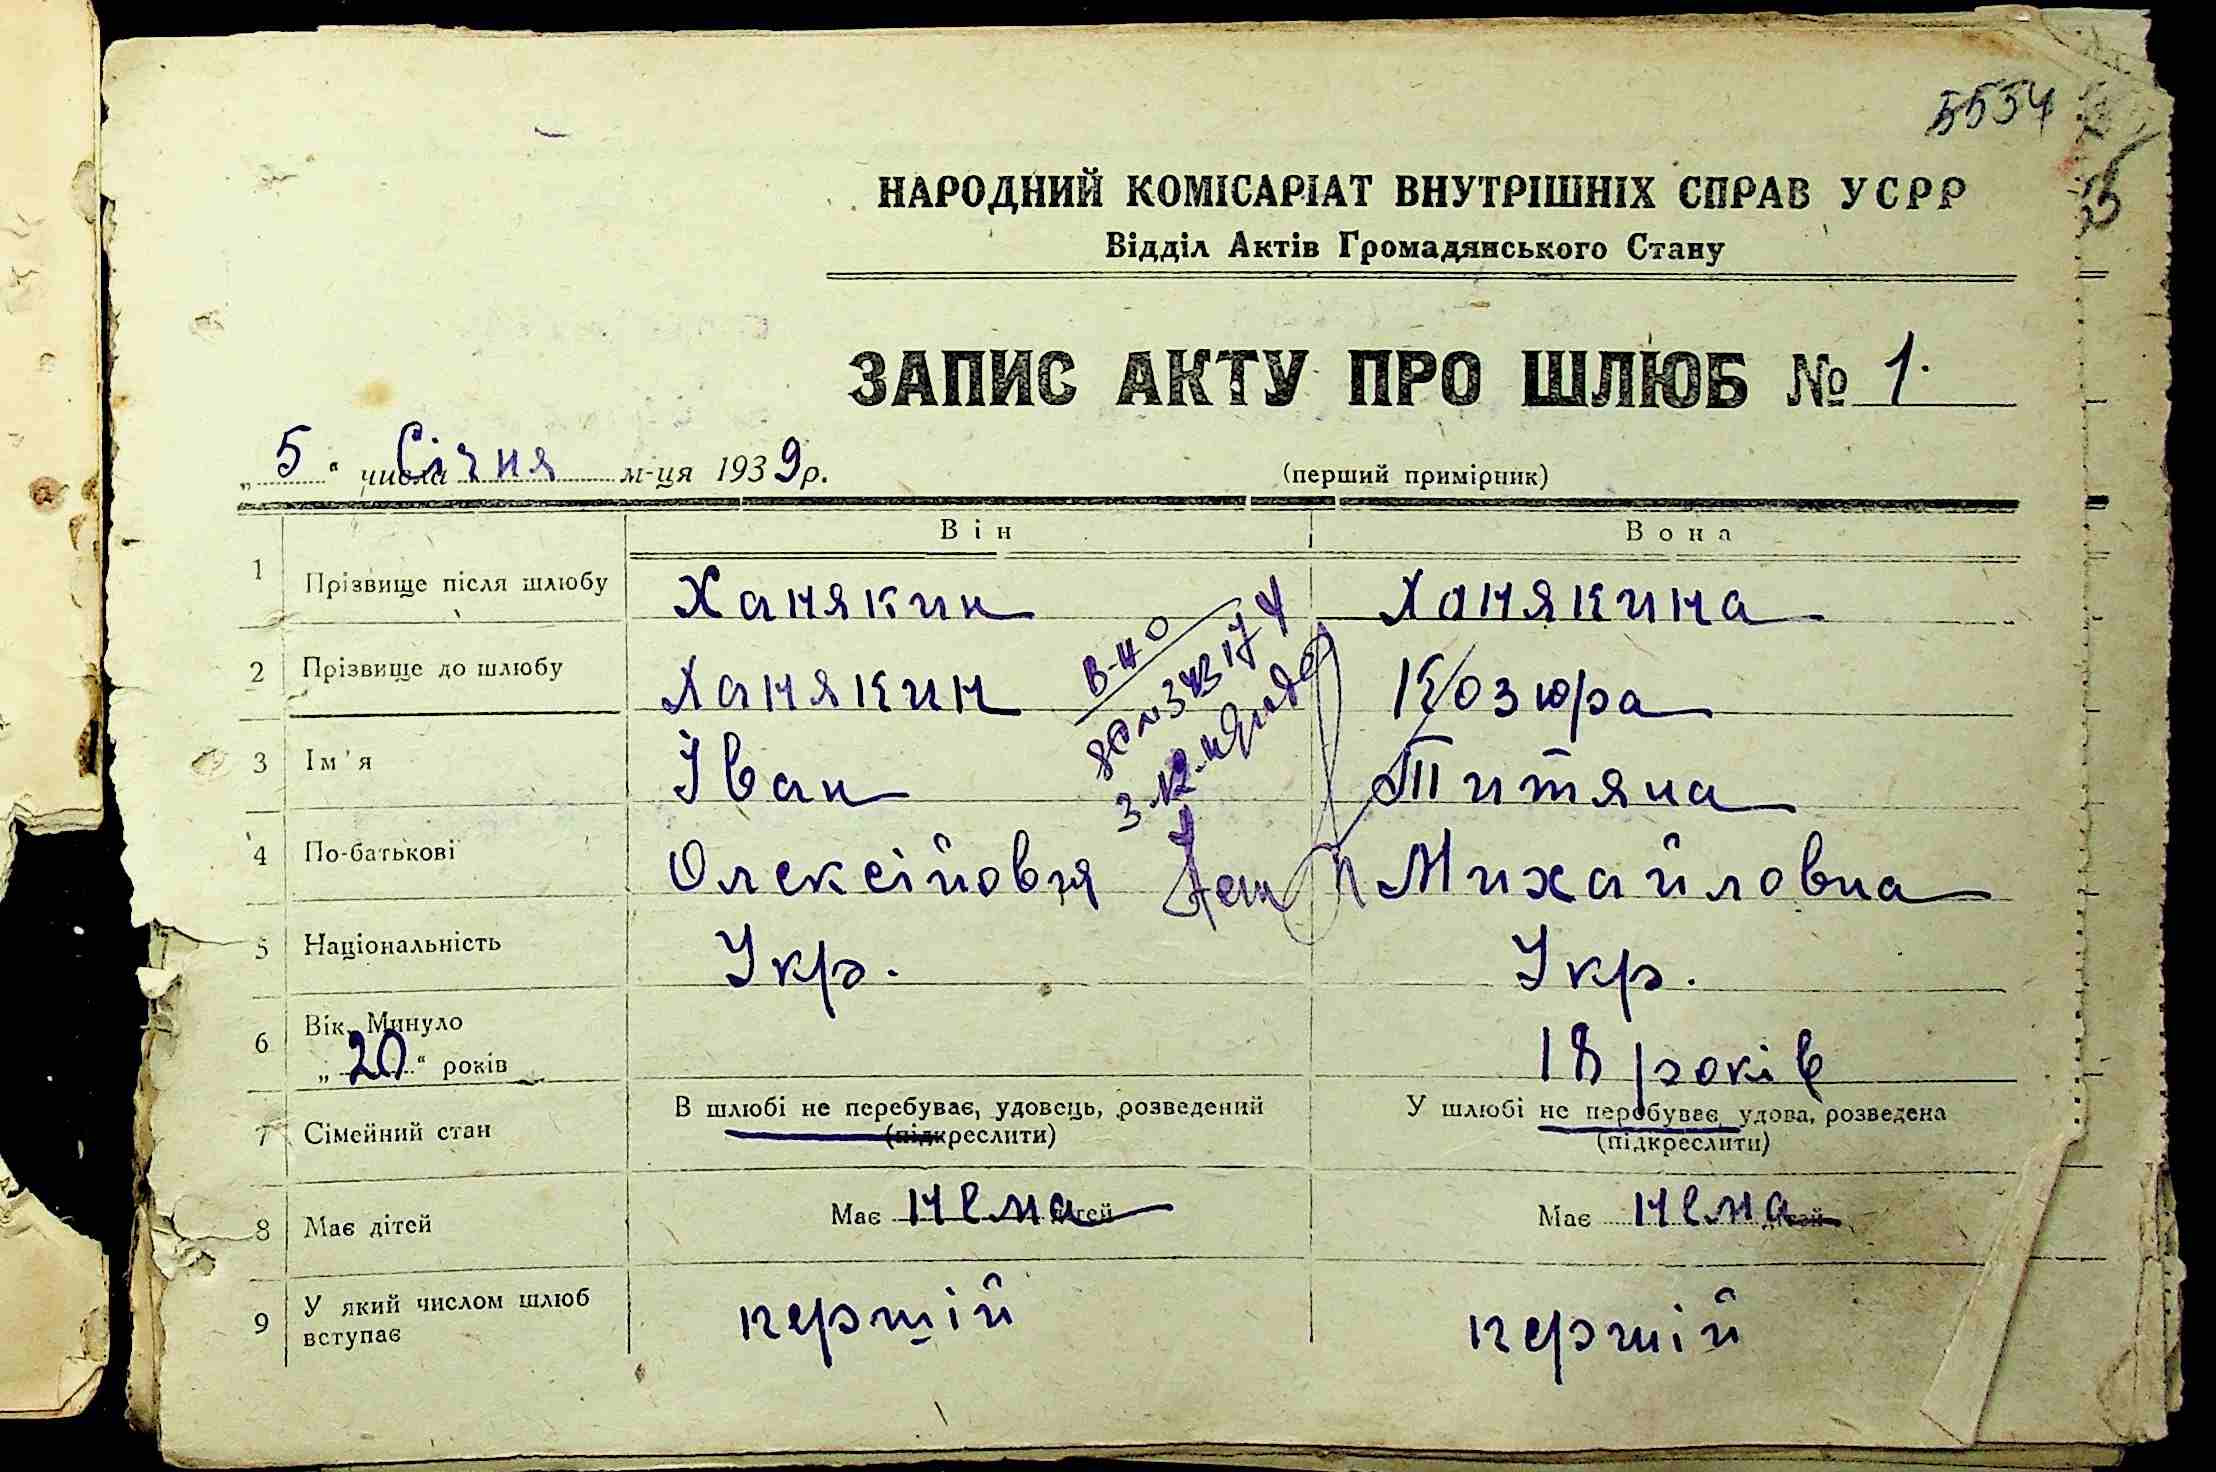 5554
НАРОДНИЙ КОМІСАРІАТ ВНУТРІШНІХ СПРАВ УСРР
Відділ Актів Громадянського Стану
ЗАПИС АКТУ ПРО ШЛЮБ № 1.
„5" числа Січня м-ця 1939 р. (перший примірник)
Він Вона
1 Прізвище після шлюбу Ханякин Ханякина
2 Прізвище до шлюбу Ханякин Козюра
3 Ім'я Іван Титяна
4 По-батькові Олексійовня Михайловна
5 Національність Укр. Укр.
6 Вік. Минуло „20" років 18 років
7 Сімейний стан В шлюбі не перебуває, удовець, розведений (підкреслити) У шлюбі не перебуває, удова, розведена (підкреслити)
8 Має дітей Має нема дітей Має нема дітей
9 У який числом шлюб вступає першій першій